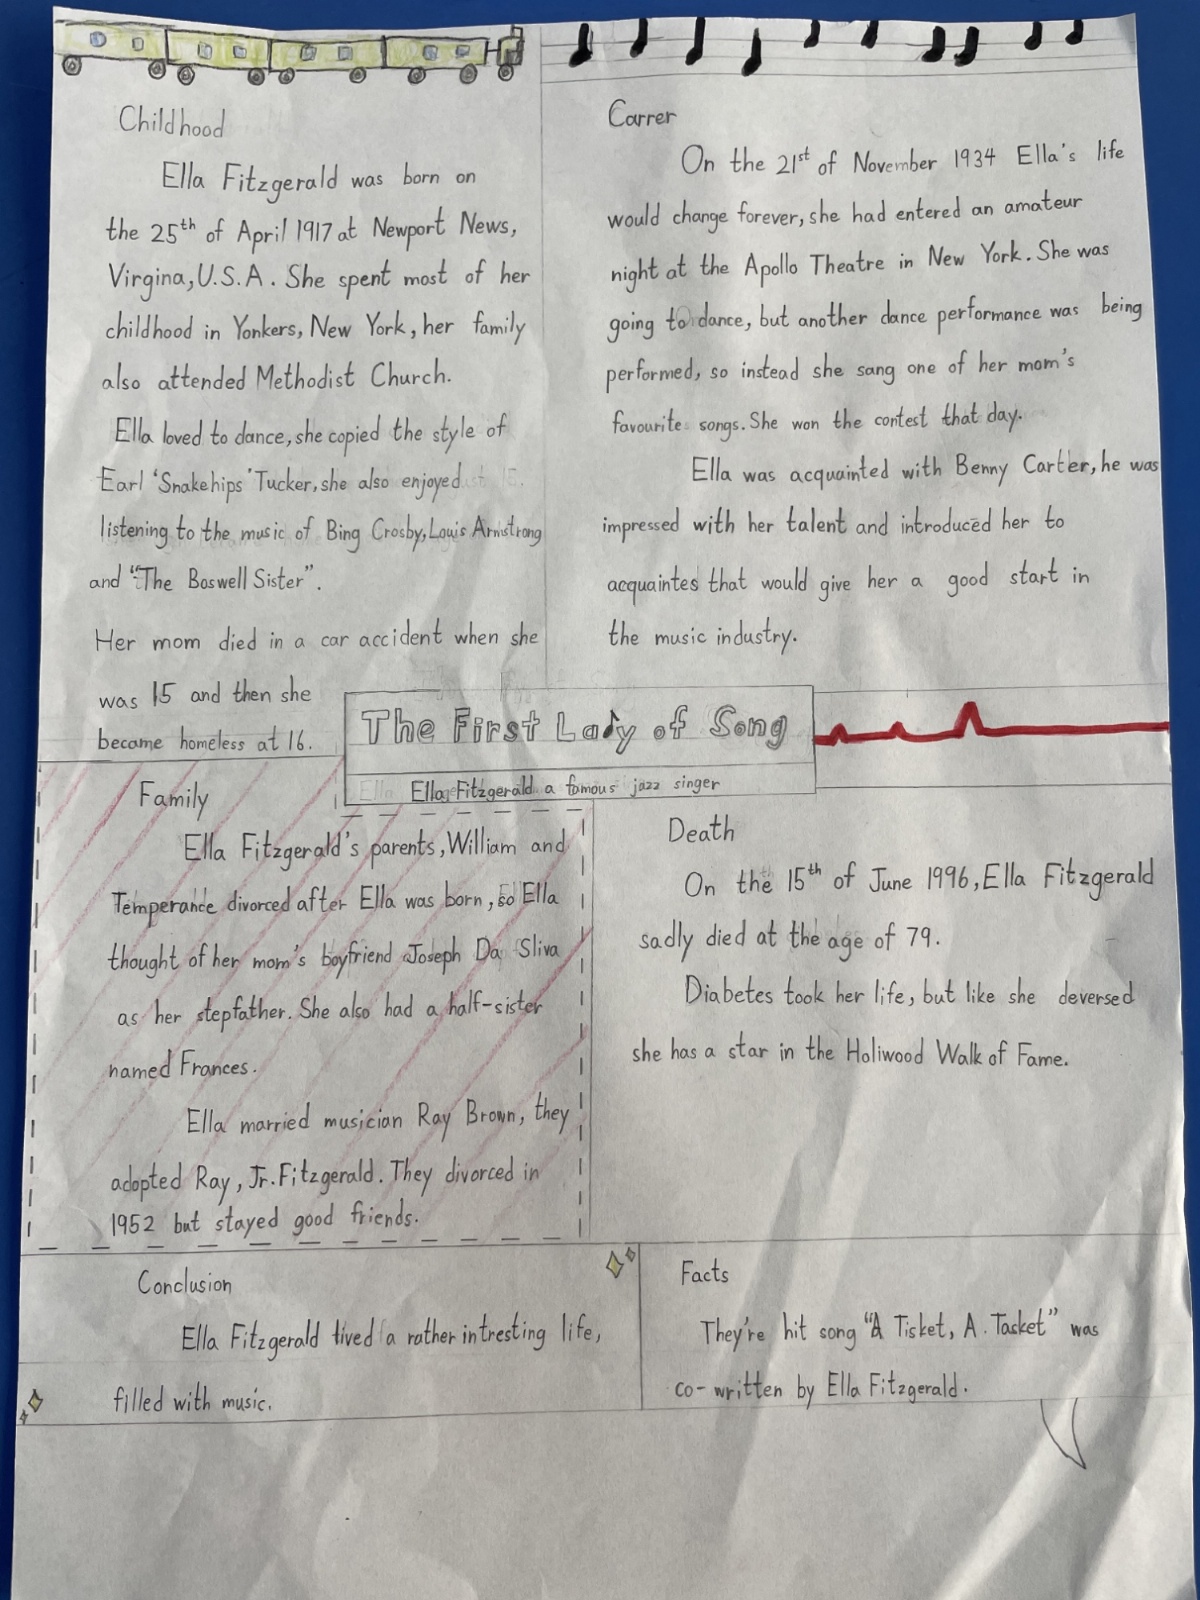 Childhood
Ella Fitzgerald was born on
the 25th of April 1917 at Newport News,
Virgina, U.S.A. She spent most of her
childhood in Yonkers, New York, her family
also attended Methodist Church.
Ella loved to dance, she copied the style of
Earl 'Snakehips' Tucker, she also enjoyed
listening to the music of Bing Crosby, Louis Armstrong
and "The Boswell Sister".
Her mom died in a car accident when she
was 15 and then she
became homeless at 16.
Carrer
On the 21st of November 1934 Ella's life
would change forever, she had entered an amateur
night at the Apollo Theatre in New York. She was
going to dance, but another dance performance was being
performed, so instead she sang one of her mom's
favourite songs. She won the contest that day.
Ella was acquainted with Benny Carter, he was
impressed with her talent and introduced her to
acquaintes that would give her a good start in
the music industry.
The First Lady of Song
Ella Fitzgerald a famous jazz singer
Family
Ella Fitzgerald's parents, William and
Temperance divorced after Ella was born, so Ella
thought of her mom's boyfriend Joseph Da Sliva
as her stepfather. She also had a half-sister
named Frances.
Ella married musician Ray Brown, they
adopted Ray, Jr. Fitzgerald. They divorced in
1952 but stayed good friends.
Death
On the 15th of June 1996, Ella Fitzgerald
sadly died at the age of 79.
Diabetes took her life, but like she deversed
she has a star in the Holiwood Walk of Fame.
Conclusion
Ella Fitzgerald lived a rather intresting life,
filled with music.
Facts
They're hit song "A Tisket, A. Tasket" was
co-written by Ella Fitzgerald.